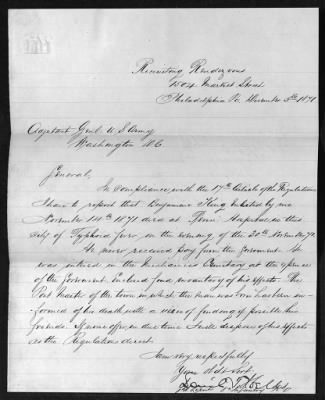 Recruiting Rendezvous
1504 Market Street
Philadelphia Pa December 5th 1871
Adjutant Genl U S Army
Washington D.C.
General,
In compliance with the 17th Article of the Regulations
I have to report that Benjamine King enlisted by me
November 14th 1871 died at Penn Hospital in this
City of Typhoid fever in the evening of the 30th November 71.
He never received pay from the Government. He
was interred in the Mechanics Cemetery at the expense
of the Government. Enclosed find inventory of his effects. The
Post Master of the town in which the man was born has been in-
formed of his death with a view of finding if possible his
friends. If none offer in due time I will dispose of his effects
as the Regulations direct.
I am very respectfully
Your Obdt Svt.